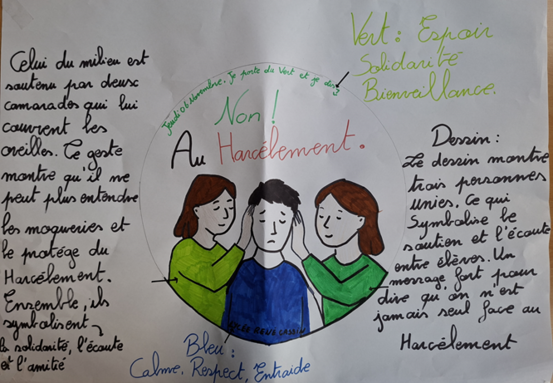 Celui du milieu est
soutenu par deux
camarades qui lui
couvrent les
oreilles. Ce geste
montre qu'il ne
peut plus entendre
les moqueries et
le protège du
Harcèlement.
Ensemble, ils
symbolisent
la solidarité, l'écoute
et l'amitié
Jeudi 06 Novembre, Je porte du Vert et je dis
Non !
Au Harcèlement.
Vert : Espoir
Solidarité
Bienveillance.
Dessin :
Le dessin montre
trois personnes
unies. Ce qui
Symbolise le
soutien et l'écoute
entre élèves. Un
message fort pour
dire qu'on n'est
jamais seul face au
Harcèlement
LYCÉE RENÉ CASSIN
Bleu :
Calme, Respect, Entraide